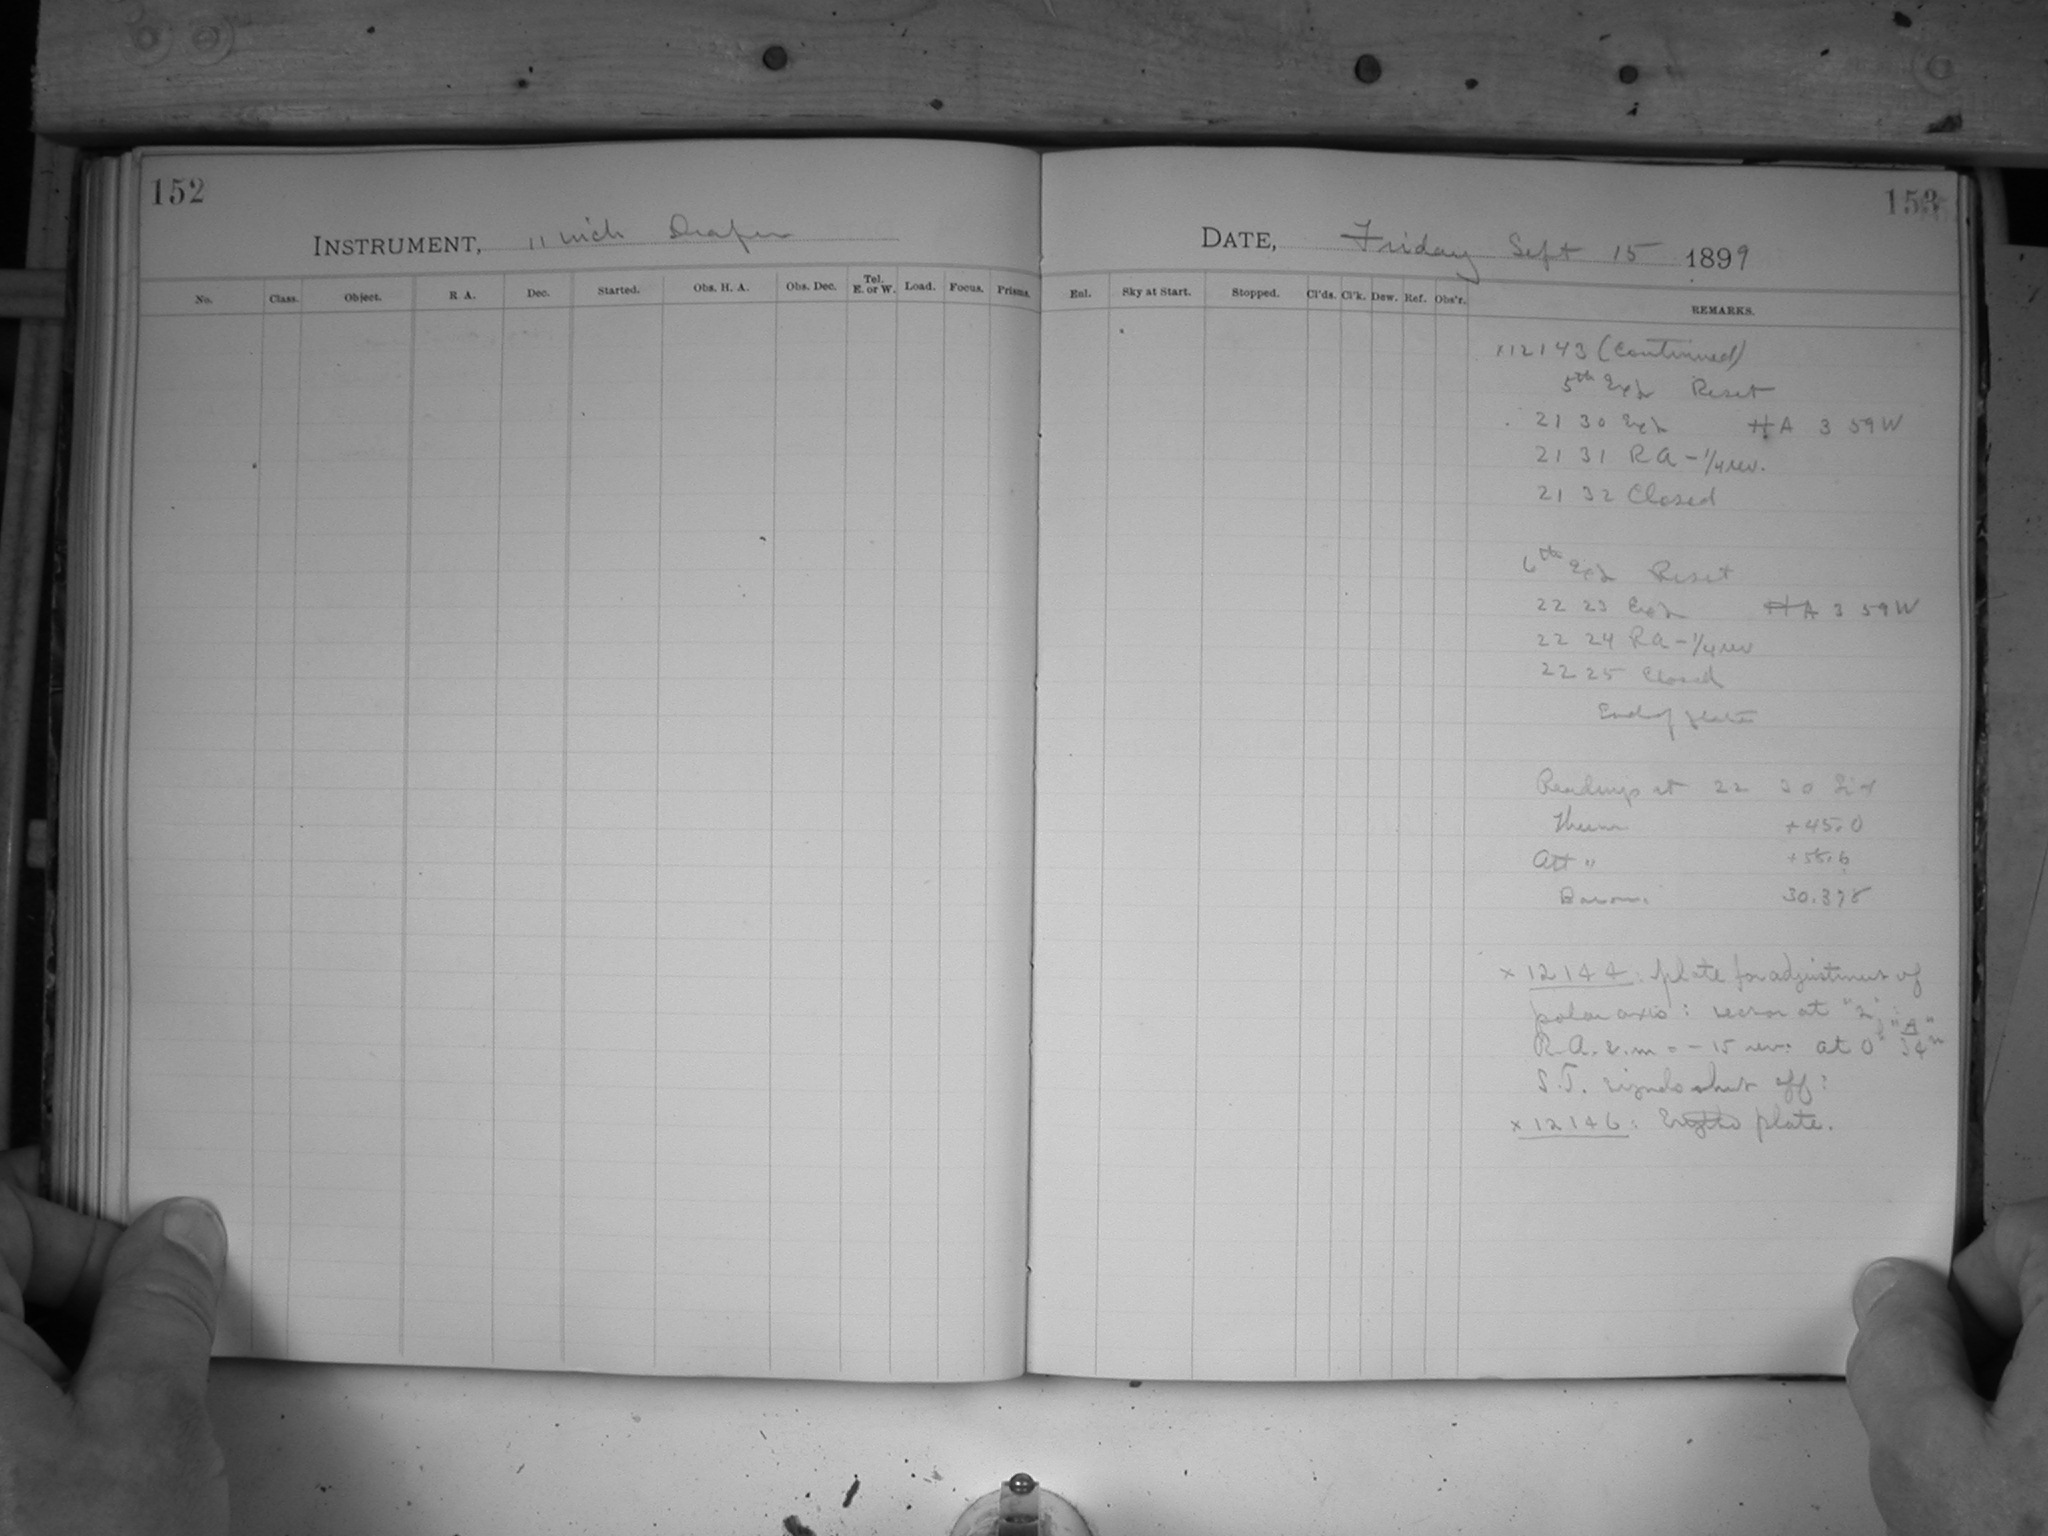 152
INSTRUMENT, 11 inch Draper
No. Class. Object. R A. Dec. Started. Obs. H. A. Obs. Dec. Tel. E. or W. Load. Focus. Prisms.
153
DATE, Friday Sept 15 1899
Enl. Sky at Start. Stopped. Cl'ds. Cl'k. Dew. Ref. Obs'r. REMARKS.
x12143 (Continued)
5th Exp Reset
21 30 Exp HA 3 59 W
21 31 RA - 1/4 rev.
21 32 Closed
6th Exp Reset
22 23 Exp HA 3 59 W
22 24 RA - 1/4 rev
22 25 Closed
End of plate
Readings at 22 30 Sid
Therm +45.0
Att " +55.6
Barom. 30.378
x 12144: plate for adjustment of
polar axis: at "2";
R.A.s.m = - 15 rev. at 0h 34m "A"
S.T. signals shut off:
x 12146: plate.